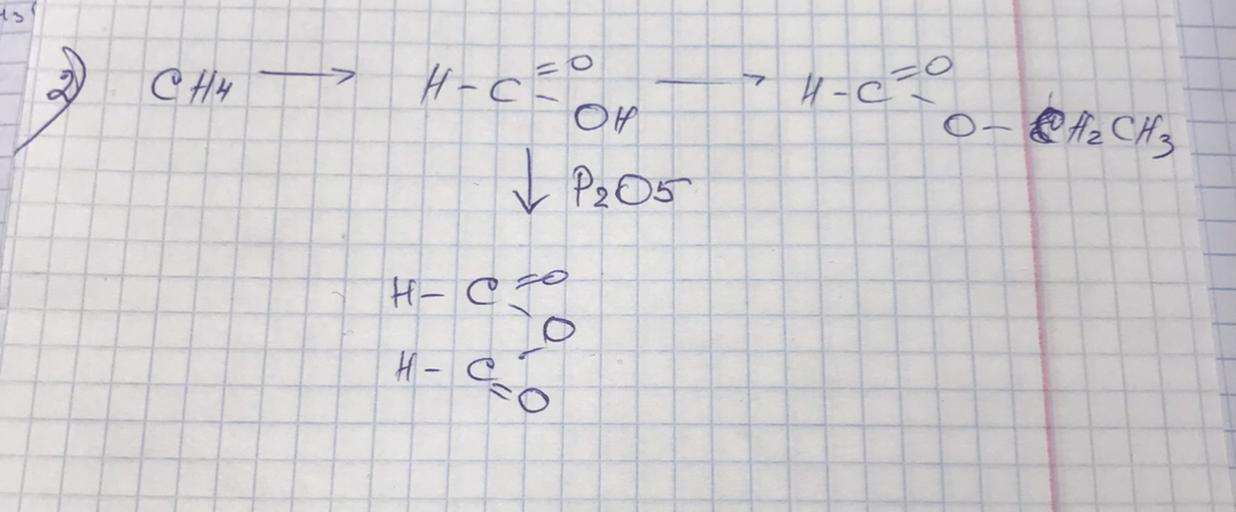 2) CH4 → H-C=O → H-C=O
-OH -O-CH2CH3
↓ P2O5
H-C=O
O
H-C=O